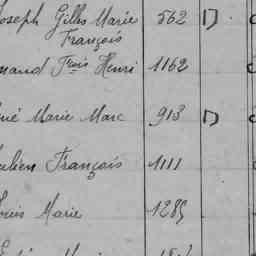 Joseph Gilles Marie 562 D.
François
mand Frois Henri 1162
né Marie Marc 913 D
ulien François 1111
ouis Marie 1285